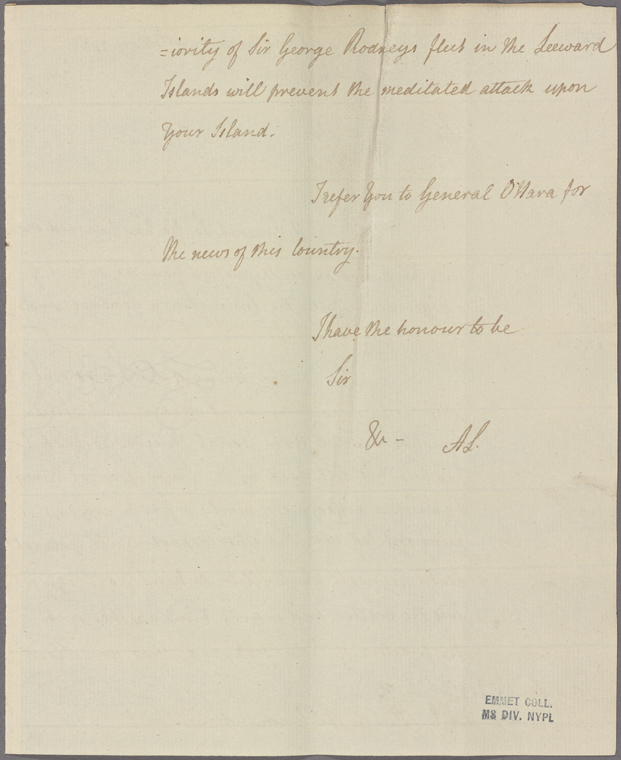 =iority of Sir George Rodneys fleet in the Leeward
Islands will prevent the meditated attack upon
Your Island.
I refer You to General O'Hara for
the news of this Country.
I have the honour to be
Sir
&c - AL.
EMMET COLL.
MS DIV. NYPL